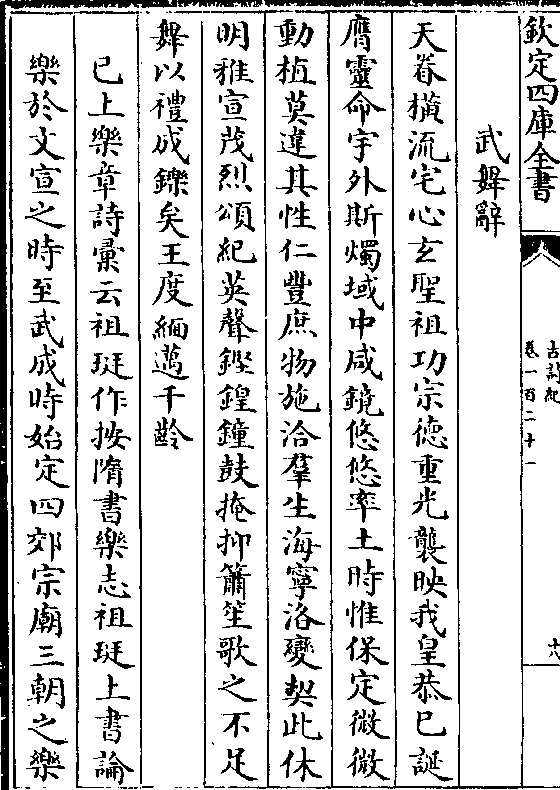 欽定四庫全書
古詩紀
卷一百二十一
十八
武舞辭
天眷横流宅心玄聖祖功宗德重光襲映我皇恭已誕
膺靈命宇外斯燭域中咸鏡悠悠率土時惟保定微微
動植莫違其性仁豐庶物施洽羣生海寧洛變契此休
明雅宣茂烈頌紀英聲鏗鍠鐘鼓掩抑簫笙歌之不足
舞以禮成鑠矣王度緬邁千齡
已上樂章詩彙云祖珽作按隋書樂志祖珽上書論
樂於文宣之時至武成時始定四郊宗廟三朝之樂